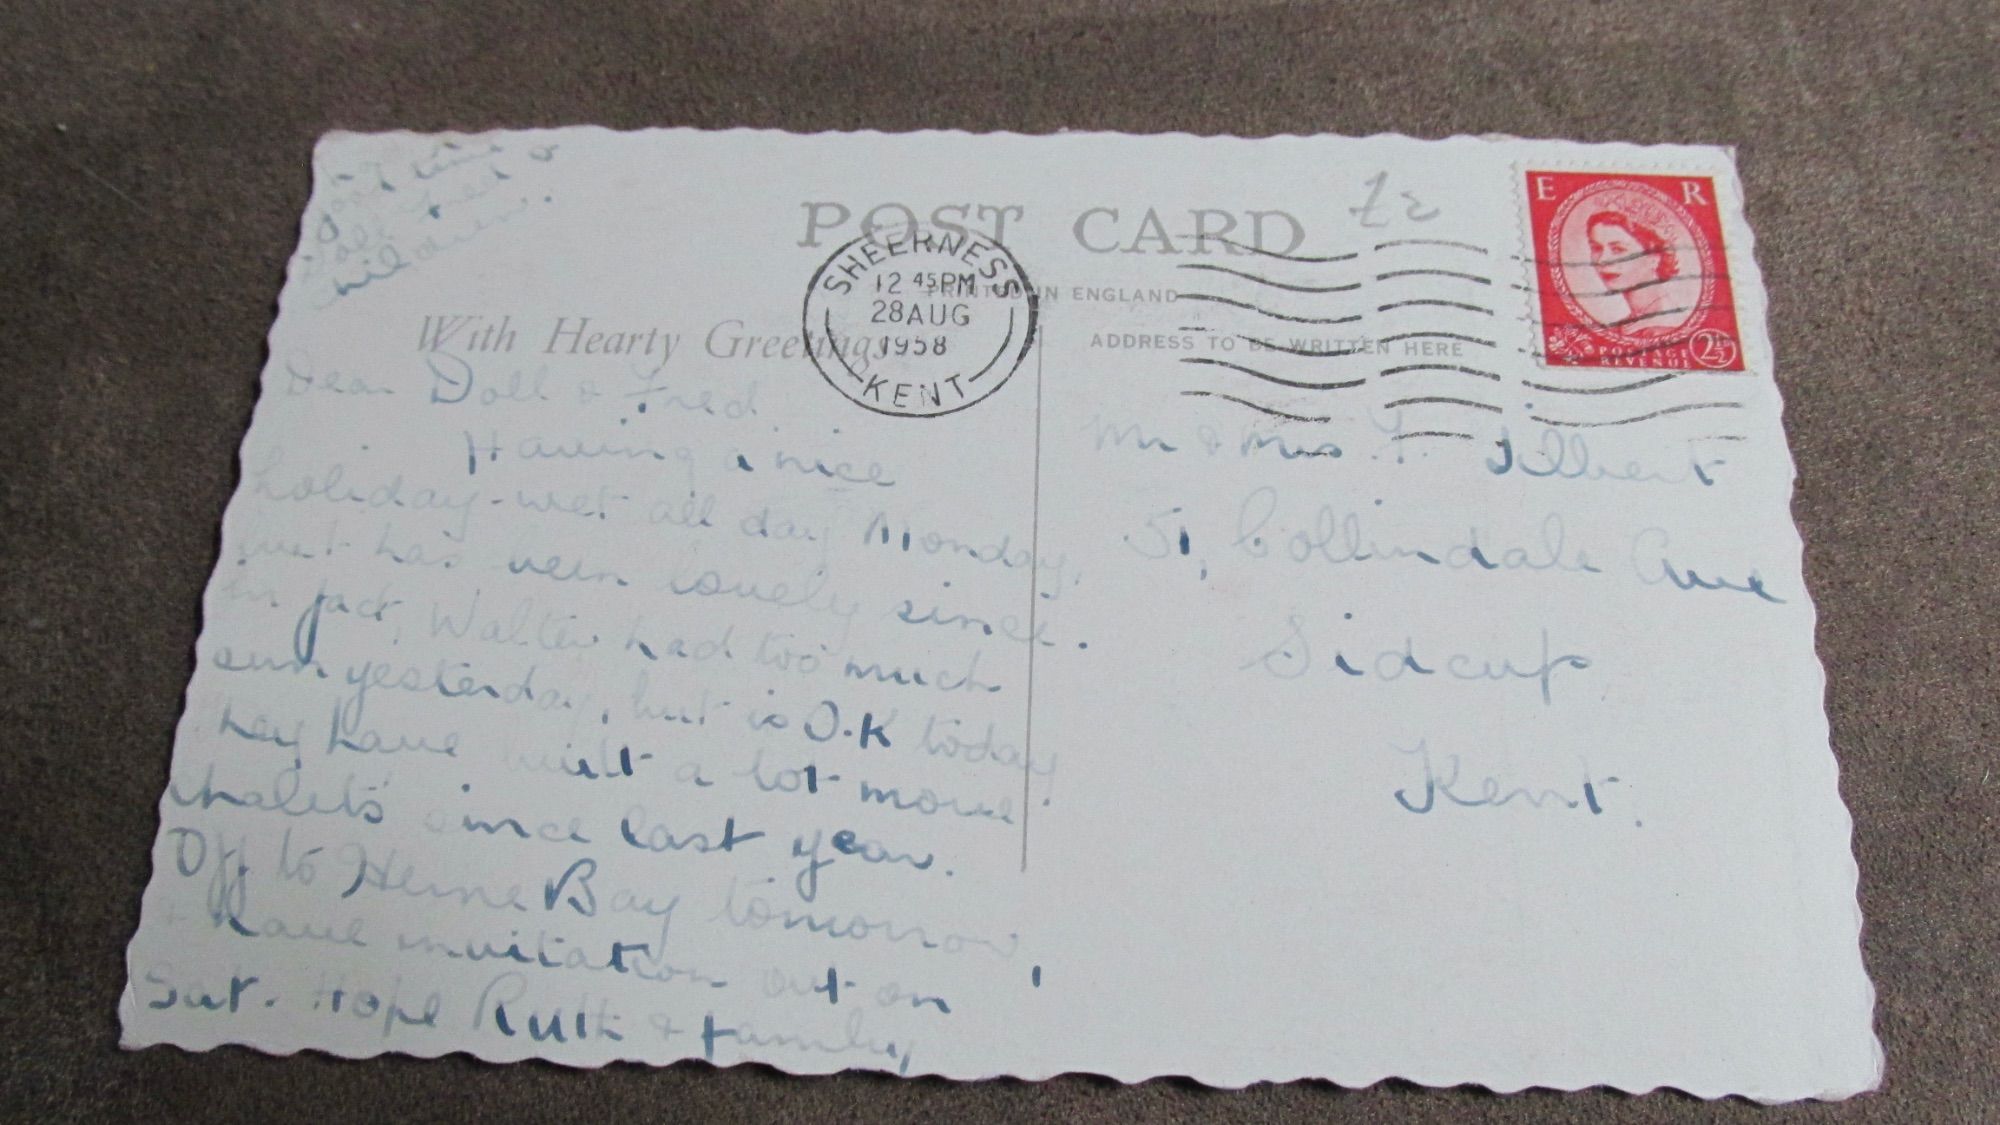 POST CARD
£2
E R
SHEERNESS
12 45PM
28 AUG
1958
KENT
PRINTED IN ENGLAND
With Hearty Greetings
ADDRESS TO BE WRITTEN HERE
POSTAGE
REVENUE
2½
Dear Doll & Fred.
Having a nice
holiday - wet all day Monday,
but has been lovely since.
In fact, Walter had too much
sun yesterday, but is O.K today
They have built a lot more
chalets since last year.
Off to Herne Bay tomorrow,
+ have invitation out on
Sat. Hope Ruth & family
Mr & Mrs F.
51, Collindale Ave
Sidcup
Kent.